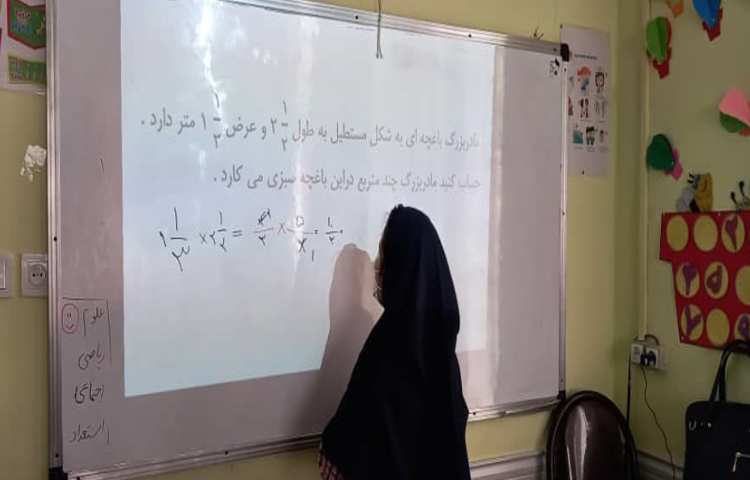 مادربزرگ باغچه ای به شکل مستطیل به طول ۲ ۱/۲ و عرض ۱ ۱/۳ متر دارد .
حساب کنید مادربزرگ چند مترمربع دراین باغچه سبزی می کارد .
۱ ۱/۳ × ۲ ۱/۲ = ۴/۳ × ۵/۲ = ۱۰/۳
علوم
ریاضی
اجتماعی
استعداد